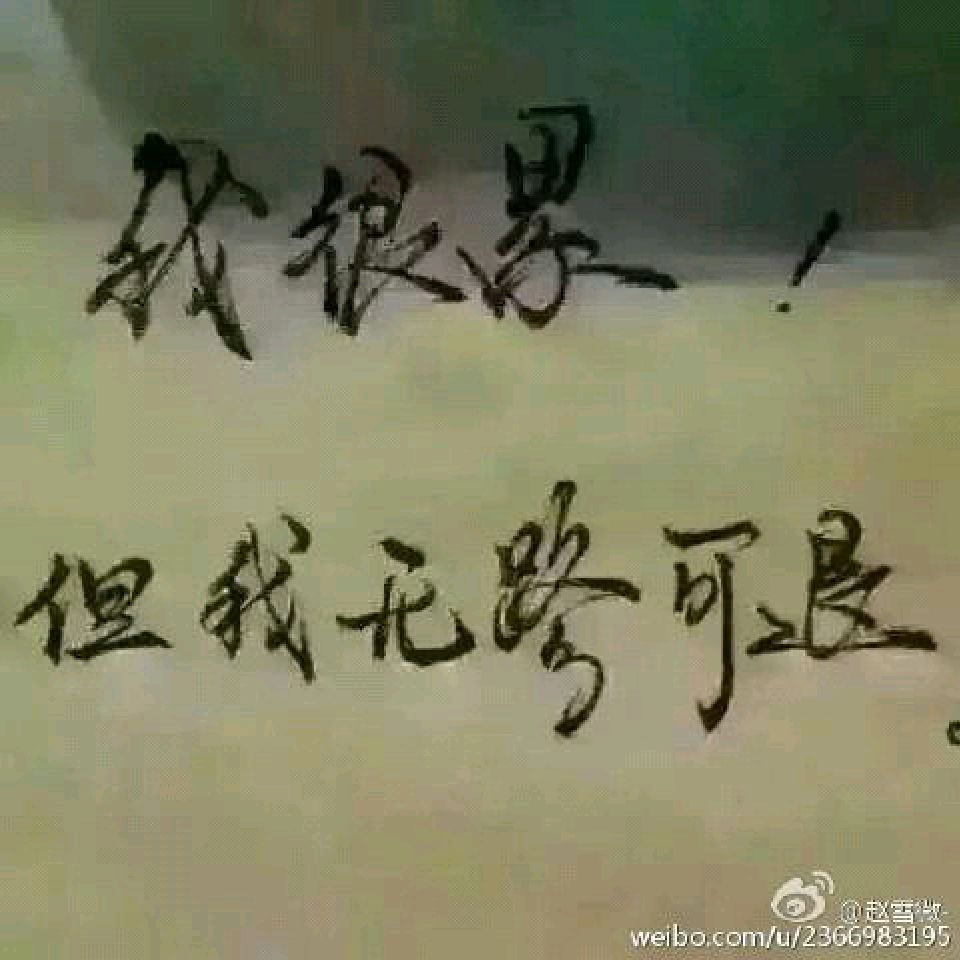 我很累！
但我无路可退。
@赵雪微-
weibo.com/u/2366983195